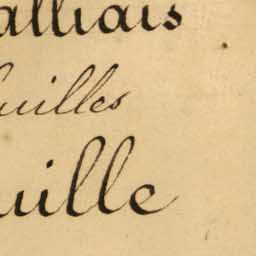 alliais
uilles
uille